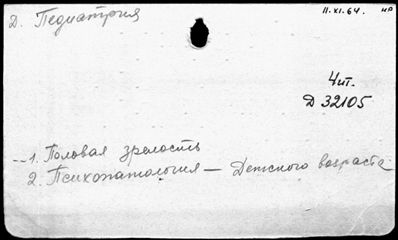 Д. Педиатрия
11.XI.64. нр
Чит.
Д 32105
1. Половая зрелость
2. Психопатология — Детского возраста